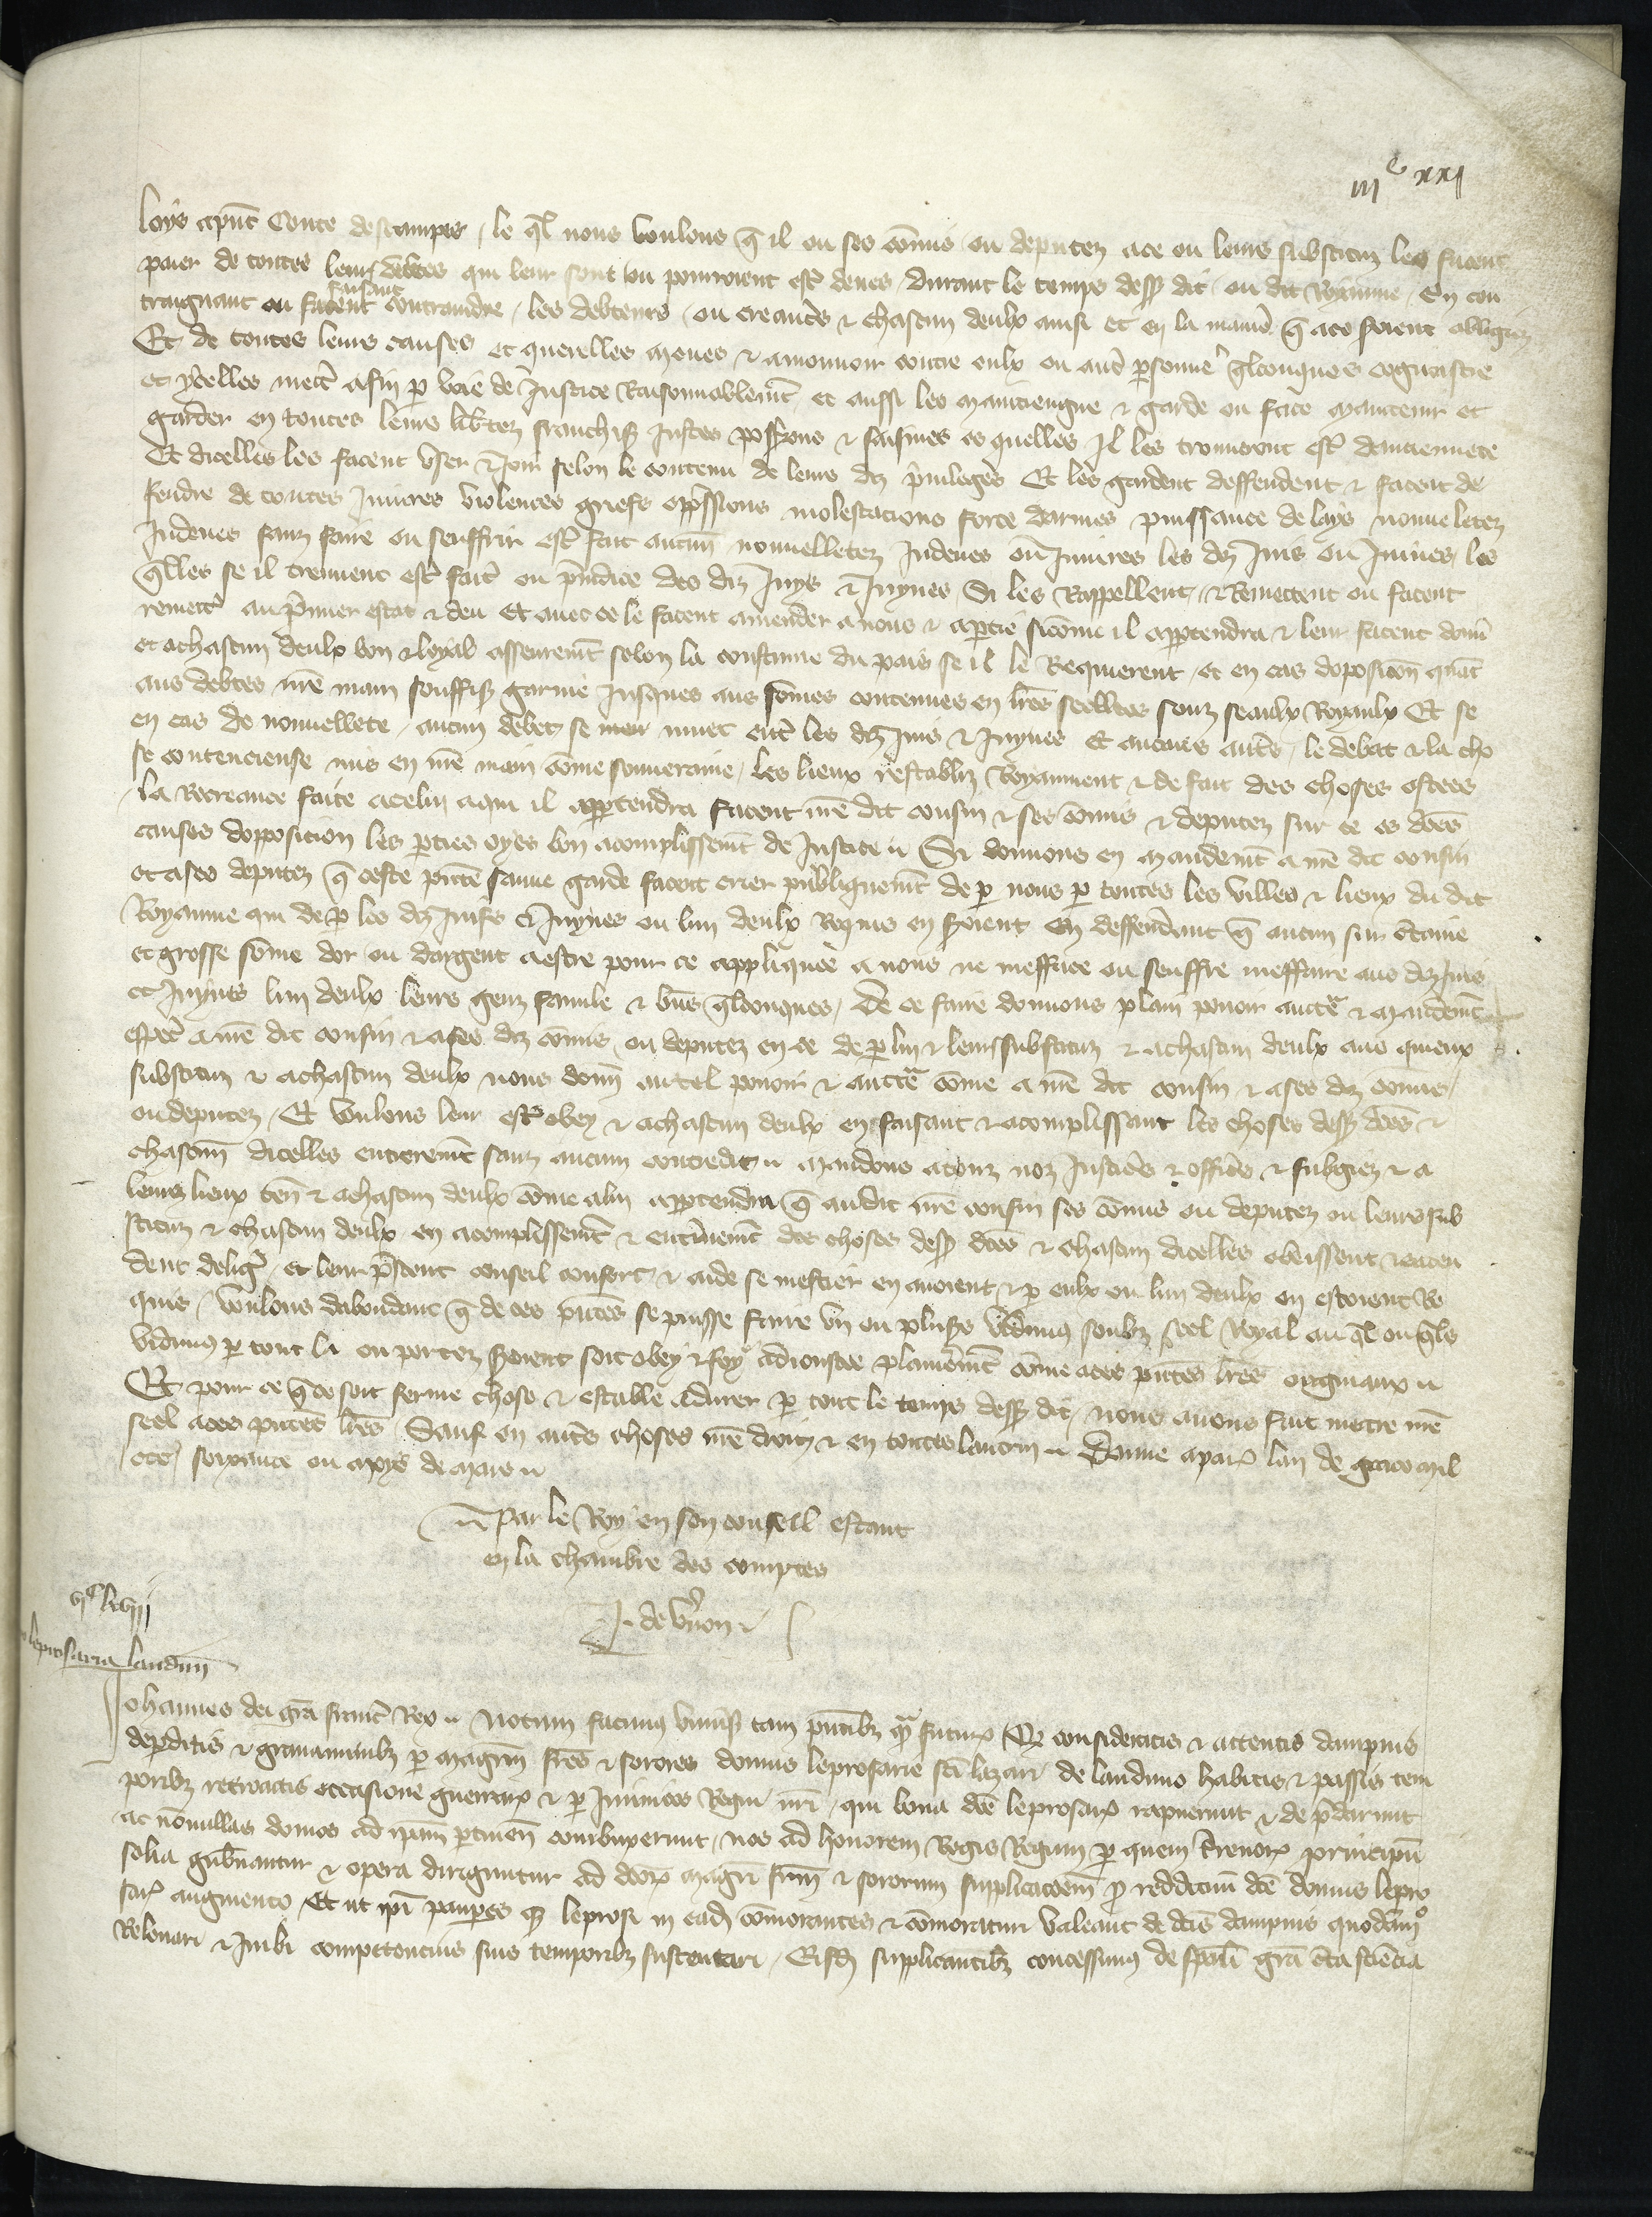 iiiᶜ xxi
loys apnt Conte destampes / le ql nous voulons q̄ il ou ses cōmis ou deputez a ce ou leurs substituz les facent
paier de toutes leurs debtes qui leur sont ou pourroient est̉ deues / durant le temps dess dit / ou dit Royaume / En con
traignant ou faisant facent contraindre / les debteurs / ou creanc̉s & chascun deulx ainsi et en la manie̓ q̄ a ce seront obligez
Et de toutes leurs causes et querelles meues & a mouuoir contre eulx ou aut̉ ꝑsonne q̄lconques cognoistre
et ycelles mett̉ a fin ꝑ voie de Justice Raisonnablemt̄ / et aussi les maintiengne & garde ou face maintenir et
garder en toutes leurs lib̉tez franchises Justes possessions & saisines es quelles Il les trouueront est̉ danciennete
Et dicelles les facent vser & Joir selon le contenu de leurs dz p̉uileges Et les gardent deffendent & facent de
fendre de toutes Iniures violences griefs opp̉ssions molestacions force darmes puissance de lays nouueletez
Indeues sanz faire ou seuffrir est̉ fait aucun̄ nouuelletez Indeues ou Iniures les dz Juis ou Juiues / les
q̄lles se il treuuent est̉ fait̉ ou p̉iudice des diz Juys & Juyues Si les Rappellent / & Remettent ou facent
remett̉ au p̉mier estat & deu Et auec ce le facent amender a nous & a ꝑtie sicōme il apptendra & leur facent donn̉
et a chascun deulx bon & loyal asseuremt̄ selon la coustume du pais se il le Requierent / et en cas doposicion quāt
aus debtes nr̄e main souffisā garnie Jusques aus sōmes contenues en lr̄es seellees souz seaulx Royaulx Et se
en cas de nouuellete / aucun debet se meu muet ent̉ les dz Juis & Juyues Et aucuns aut̉s / le debat & la cho
se contencieuse mis en nr̄e main cōme souueraine / les lieux restabliz Royaument & de fait des choses ostees
la Recreance faite a celui a qui il apptendra Facent nr̄e dit cousin & ses cōmis & deputez sur ce es dc̄es
causes dopposition les ꝑties oyes bon acomplissemt̄ de Justice // Si donnons en mandemt̄ a nr̄e dit cousin
et a ses deputez q̄ ceste pn̄te sauue garde facent crier publiquemt̄ de ꝑ nous ꝑ toutes les villes & lieux du dit
Royaume qui de ꝑ les dz Juifs & Juyues ou lun deulx Requis en seroient En deffendant q̄ aucun sur c̉taine
et grosse sōme dor ou dargent a estre pour ce appliquee a nous ne mefface ou seuffre meffaire aus dz Juis
et Juyues lun deulx leurs genz famile & biēs q̄lconques / De ce faire donnons plain pouoir aucte̓ & mandemt̄
especi̓ a nr̄e dit cousin & a ses dz cōmis ou deputez en ce de ꝑ lui & leurs substituz & a chascun deulx aus quieux
substituz & a chascun deulx nous donn̄ autel pouoir & aucte̓ cōme a nr̄e dit cousin & a ses dz cōmis /
ou deputez / Et voulons leur est̉ obey & a chascun deulx en faisant & acomplissant les choses dess dc̄es &
chascun̄ dicelles entieremt̄ sanz aucun contredit // mandons a touz noz Justicie̓s & officie̓s & subgez & a
leurs lieux ten̄ & a chascun deulx cōme a lui apptendra q̄ au dit nr̄e cousin ses cōmis ou deputez ou leurs sub
stituz & chascun deulx en acomplissemt̄ & ent̉inemt̄ des choses dess dc̄es & chascun dicelles obeissent & enten
dent dilig̉ / et leur p̉stent conseil confort & aide se mestier en auoient & ꝑ eulx ou lun deulx en estoient Re
quis / Voulons dabondant q̄ de ces pn̄tes se puisse faire vn ou plus̉s vidimus soubz seel Royal au q̄l ou q̄ls
vidimus ꝑ tout la ou portez seroient soit obey & foy adioustee plainemt̄ cōme a ces pn̄tes lr̄es originaux //
Et pour ce q̄ ce soit ferme chose & estable a durer ꝑ tout le temps dess dit / nous auons fait mettre nr̄e
seel a ces pn̄tes lr̄es / Sauf en aut̉s choses nr̄e droit & en toutes lautrui // Donne a paris lan de grace mil
ccc soixante ou moys de mars //
// Par le Roy en son conseil estant
en la chambre des comptes
J. de v̉non //
viᶜ lxviij
leprosaria laudun̄
Johannes dei gr̄a franc̉ Rex // Notum facimus vniūsis tam pn̄tibꝫ qᵃ futur̄ Qꝫ consideratis & attentis dampnis
deꝑditis & grauaminibꝫ ꝑ magr̄m fr̄es & sorores domus leprosarie sci̅ lazari de lauduno habitis & passis tem
poribꝫ retroactis occasione guerrarꝫ & ꝑ Inimicos Regni nr̄i / qui bona dc̄e leprosar̄ rapuerunt & dep̉darunt
ac nōnullas domos ad ip̄am ꝑtinen̄ combuxerunt / nos ad honorem Regis Regum ꝑ quem t̉renorꝫ principū
solia gub̉nantur & opera diriguntur ad dc̄orꝫ magr̄i fr̄um & sororum supplicac̄oem ꝓ reddituū dc̄e domus lepro
sar̄ augmento Et ut ip̄i pauꝑes qꝫ leprosi in ead̄ cōmorantes & cōmoraturi valeant de dc̄is dampnis quodāmᵒ
Releuari & Inibi competencius suis temporibꝫ sustentari / Eisd̄ supplicantibꝫ concessimus de sp̄ali gr̄a c̉ta sciēcia